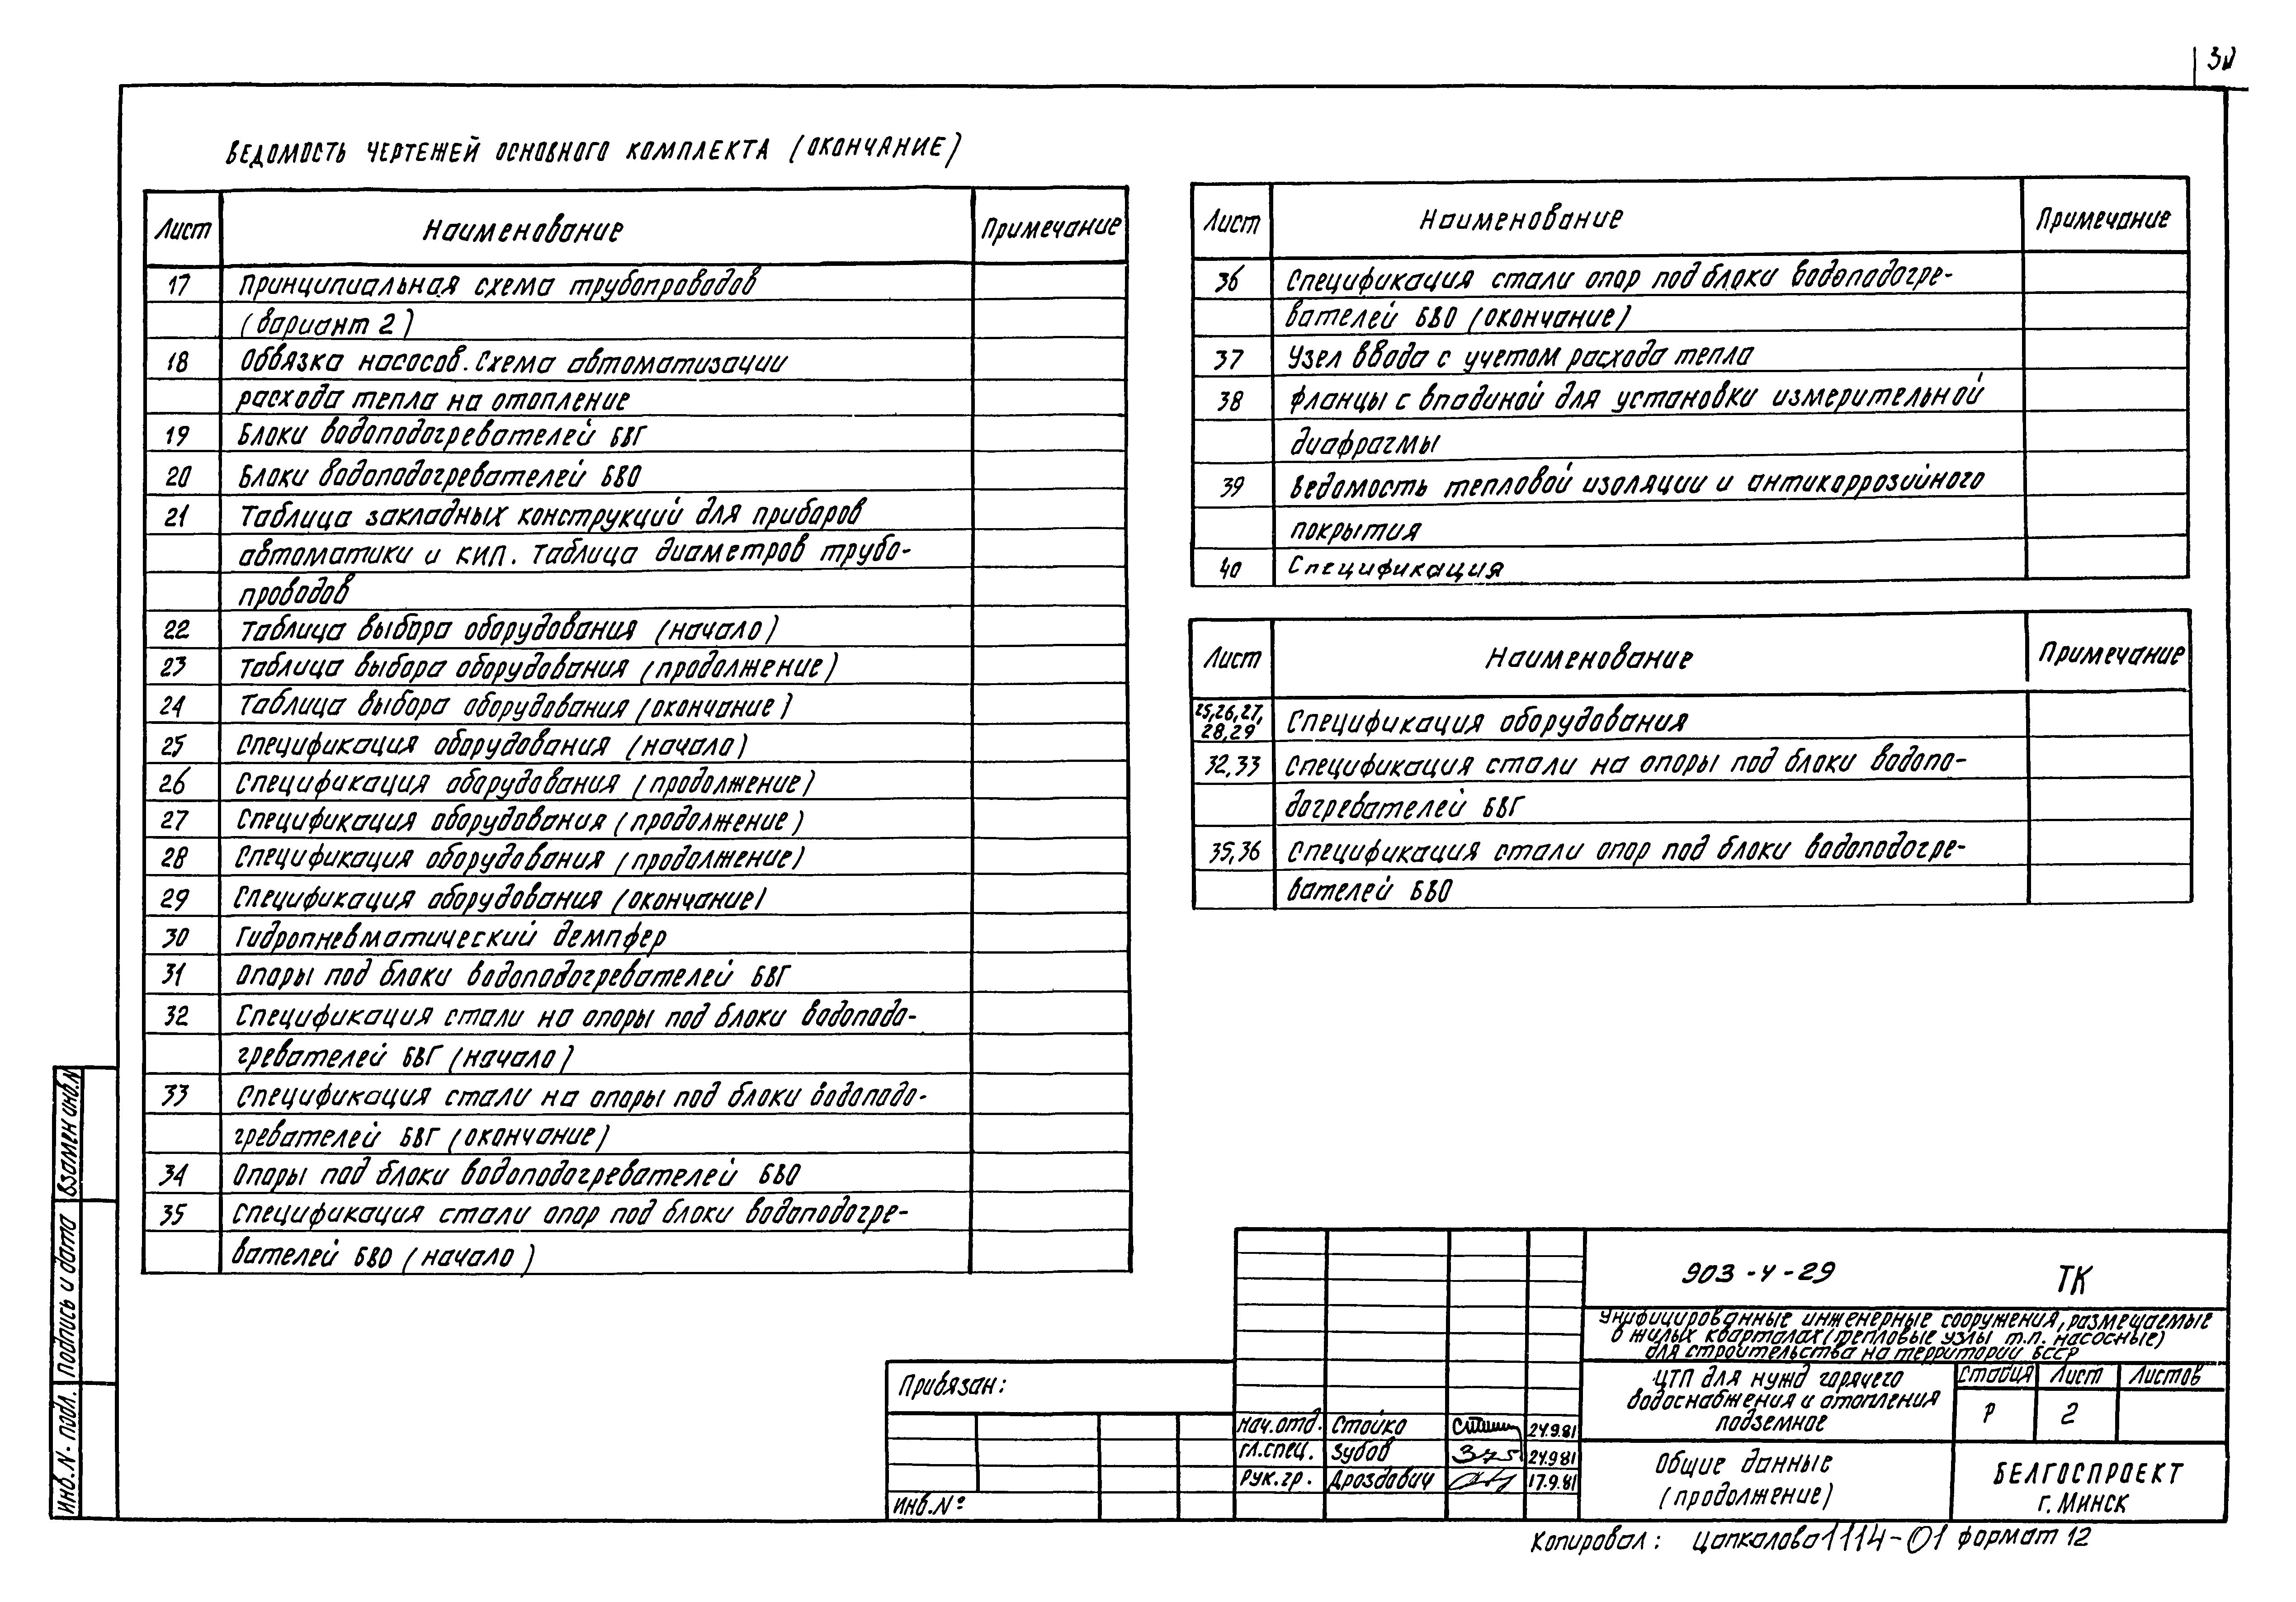 ВЕДОМОСТЬ ЧЕРТЕЖЕЙ ОСНОВНОГО КОМПЛЕКТА (ОКОНЧАНИЕ)
Лист Наименование Примечание
17 Принципиальная схема трубопроводов
(вариант 2)
18 Обвязка насосов. Схема автоматизации
расхода тепла на отопление
19 Блоки водоподогревателей БВГ
20 Блоки водоподогревателей БВО
21 Таблица закладных конструкций для приборов
автоматики и КИП. Таблица диаметров трубо-
проводов
22 Таблица выбора оборудования (начало)
23 Таблица выбора оборудования (продолжение)
24 Таблица выбора оборудования (окончание)
25 Спецификация оборудования (начало)
26 Спецификация оборудования (продолжение)
27 Спецификация оборудования (продолжение)
28 Спецификация оборудования (продолжение)
29 Спецификация оборудования (окончание)
30 Гидропневматический демпфер
31 Опоры под блоки водоподогревателей БВГ
32 Спецификация стали на опоры под блоки водоподо-
гревателей БВГ (начало)
33 Спецификация стали на опоры под блоки водоподо-
гревателей БВГ (окончание)
34 Опоры под блоки водоподогревателей БВО
35 Спецификация стали опор под блоки водоподогре-
вателей БВО (начало)
Лист Наименование Примечание
36 Спецификация стали опор под блоки водоподогре-
вателей БВО (окончание)
37 Узел ввода с учетом расхода тепла
38 Фланцы с впадиной для установки измерительной
диафрагмы
39 Ведомость тепловой изоляции и антикоррозийного
покрытия
40 Спецификация
Лист Наименование Примечание
25,26,27,
28,29 Спецификация оборудования
32,33 Спецификация стали на опоры под блоки водопо-
догревателей БВГ
35,36 Спецификация стали опор под блоки водоподогре-
вателей БВО
903-4-29 ТК
Унифицированные инженерные сооружения, размещаемые
в жилых кварталах (тепловые узлы т.п. насосные)
для строительства на территории БССР
ЦТП для нужд горячего
водоснабжения и отопления
подземное
Стадия Лист Листов
Р 2
Общие данные
(продолжение)
БЕЛГОСПРОЕКТ
г. Минск
Привязан:
Инв.№
нач.отд. Стойко 24.9.81
гл.спец. Зубов 24.9.81
рук.гр. Дроздович 17.9.81
Копировал: Цапкалова 1114-01 формат 12
Взамен инв.N
Подпись и дата
Инв.N подл.